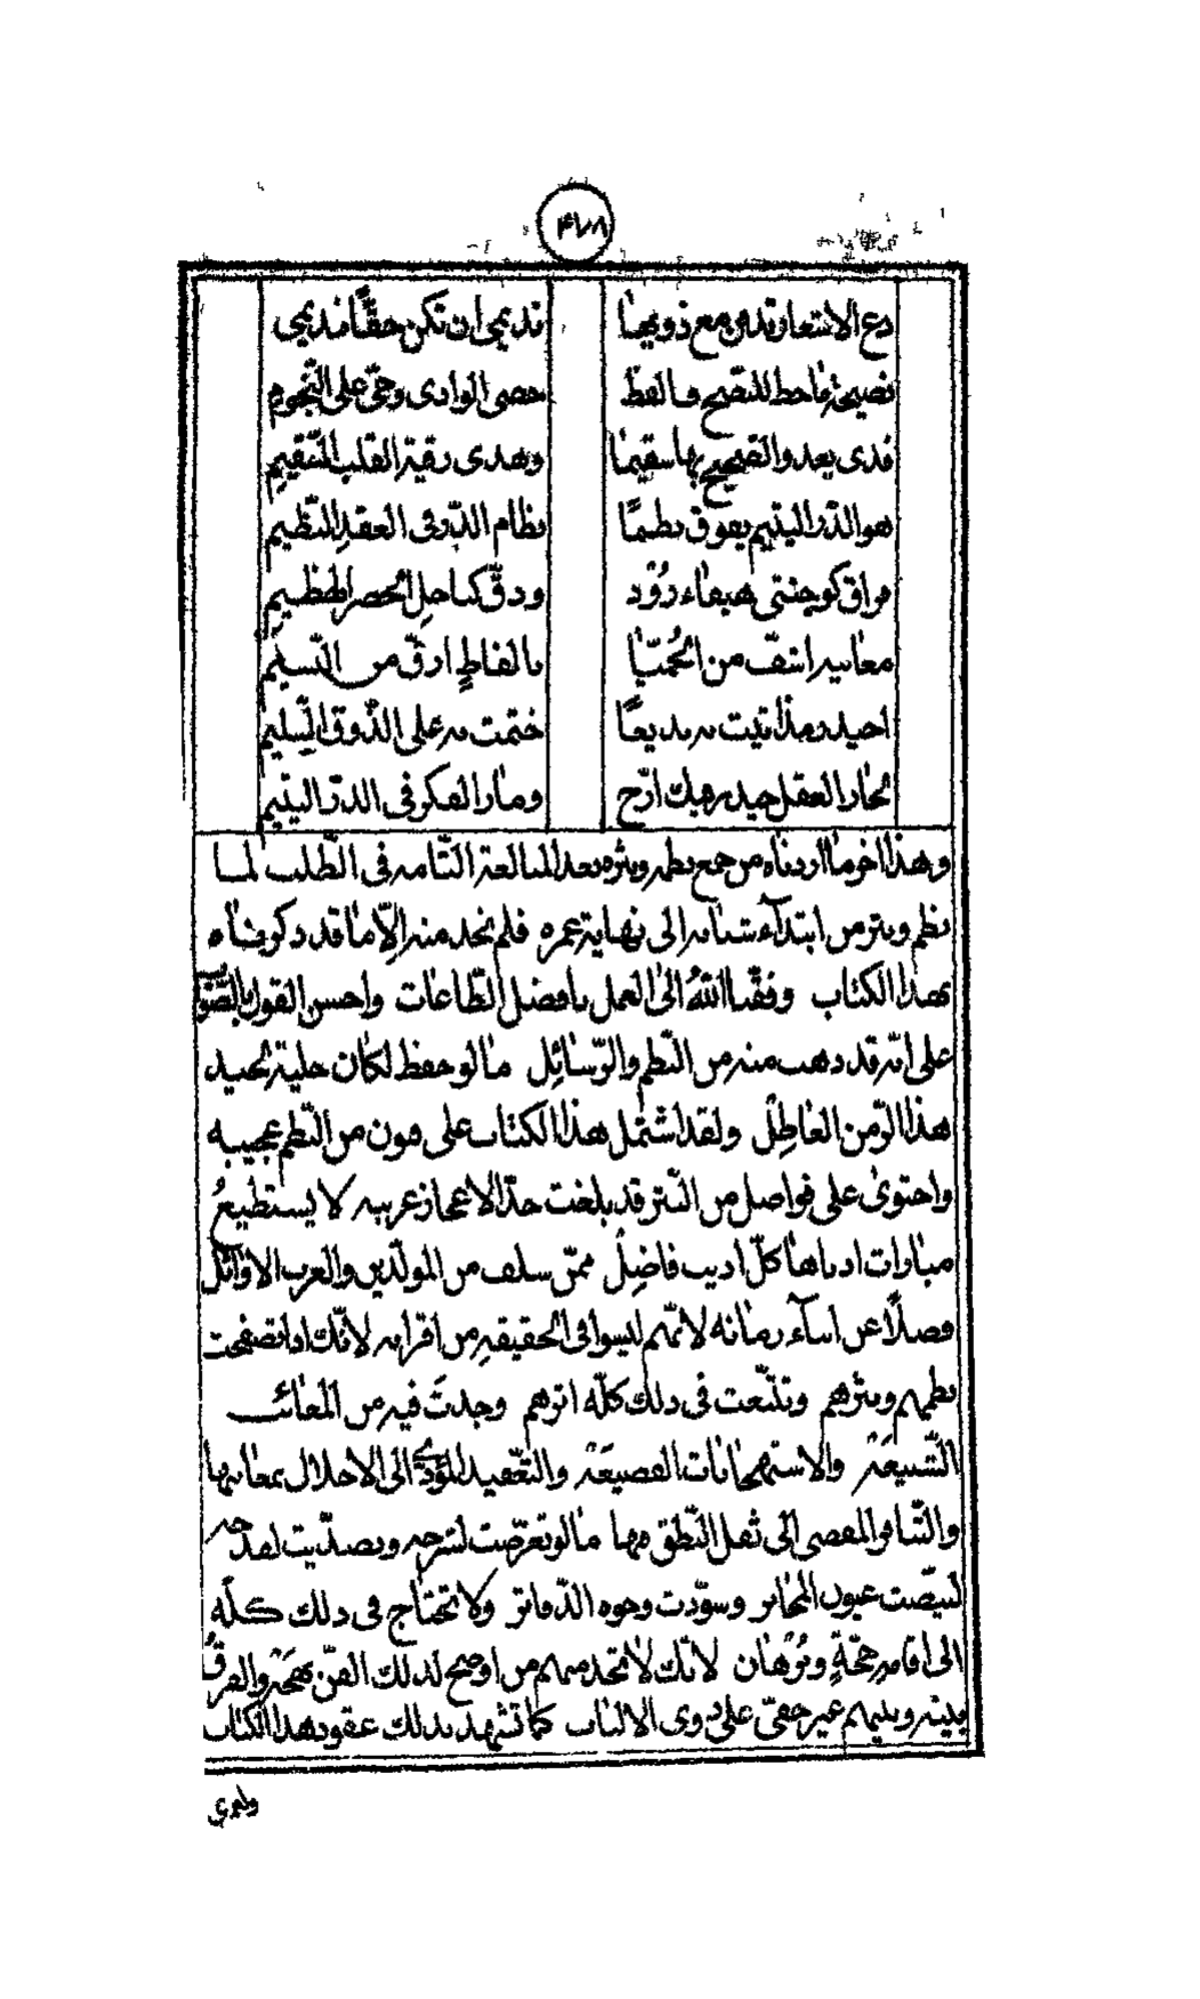 ۴۷۸
دع الاشعار تدفن مع ذويها نديمي ان تكن حقًّا نديمي
نصيحة ماحط للنصح فالفظ حصى الوادى وحىّ على النّجوم
فذى يعدو الصّحيح بها سقيمًا وهذى رقية القلب السّقيم
هو الدّر اليتيم يفوق نظمًا نظام الدّر فى العقد النّظيم
فراق كوجنتى هيفاء رؤد ودقّ كما حل الخصر الهظيم
معانيه اشفّ من الحُميّا بالفاظٍ ارقّ من النّسيم
اجيد ومذ اتيت به بديعًا ختمت به على الذّوق السّليم
لحار العقل فيه هبك ارّخ ومار الفكر فى الدرّ اليتيم
وهذا اخر ما اردناه من جمع نظمه ونثره بعد المبالغة التّامه فى الطّلب لما
نظم ونثر من ابتدآء شبابه الى نهاية عمره فلم نجد منه الّا ما قد ذكرناه
بهذا الكتاب وفّقنا اللهُ الى العمل بافضل الطّاعات واحسن القول بالصّواب
على انّه قد ذهب منه من النّظم والرّسائل ما لو حفظ لكان حلية لجيد
هذا الزّمن العاطِل ولقد اشتمل هذا الكتاب على فنون من النّظم عجيبه
واحتوى على فواصل من النّثر قد بلغت حدّ الاعجاز غريبه لا يستطيعُ
مبارات ادناها كلّ اديب فاضِل ممّن سلف من المولّدين والعرب الاوائل
فضلًا عن ابنآء زمانه لانّهم ليسوا فى الحقيقةِ من اقرانه لانّك اذا تصفّحت
نظمهم ونثرهم وتتبّعت فى ذلك كلّه اثرهم وجدتَ فيه من المعائب
الشّنيعَة والاستهجانات الفضيعَة والتّعقيد المؤدّي الى الاخلال بمعانيها
والتّنافر المفضى الى ثقل النّطق فيها ما لو تعرّضت لشرحه وتصدّيت لقدحه
لبيّضت عيون المحابر وسوّدت وجوه الدّفاتر ولا تحتاج فى ذلك كلّه
الى اقامةِ حجّةٍ وبُرْهان لانّك لا تجد منهم من اوضح لذلك الفنّ نهجَهْ والفرقُ
بينه وبينهم غير خفىّ على ذوى الالباب كما تشهد بذلك عقود هذا الكتاب